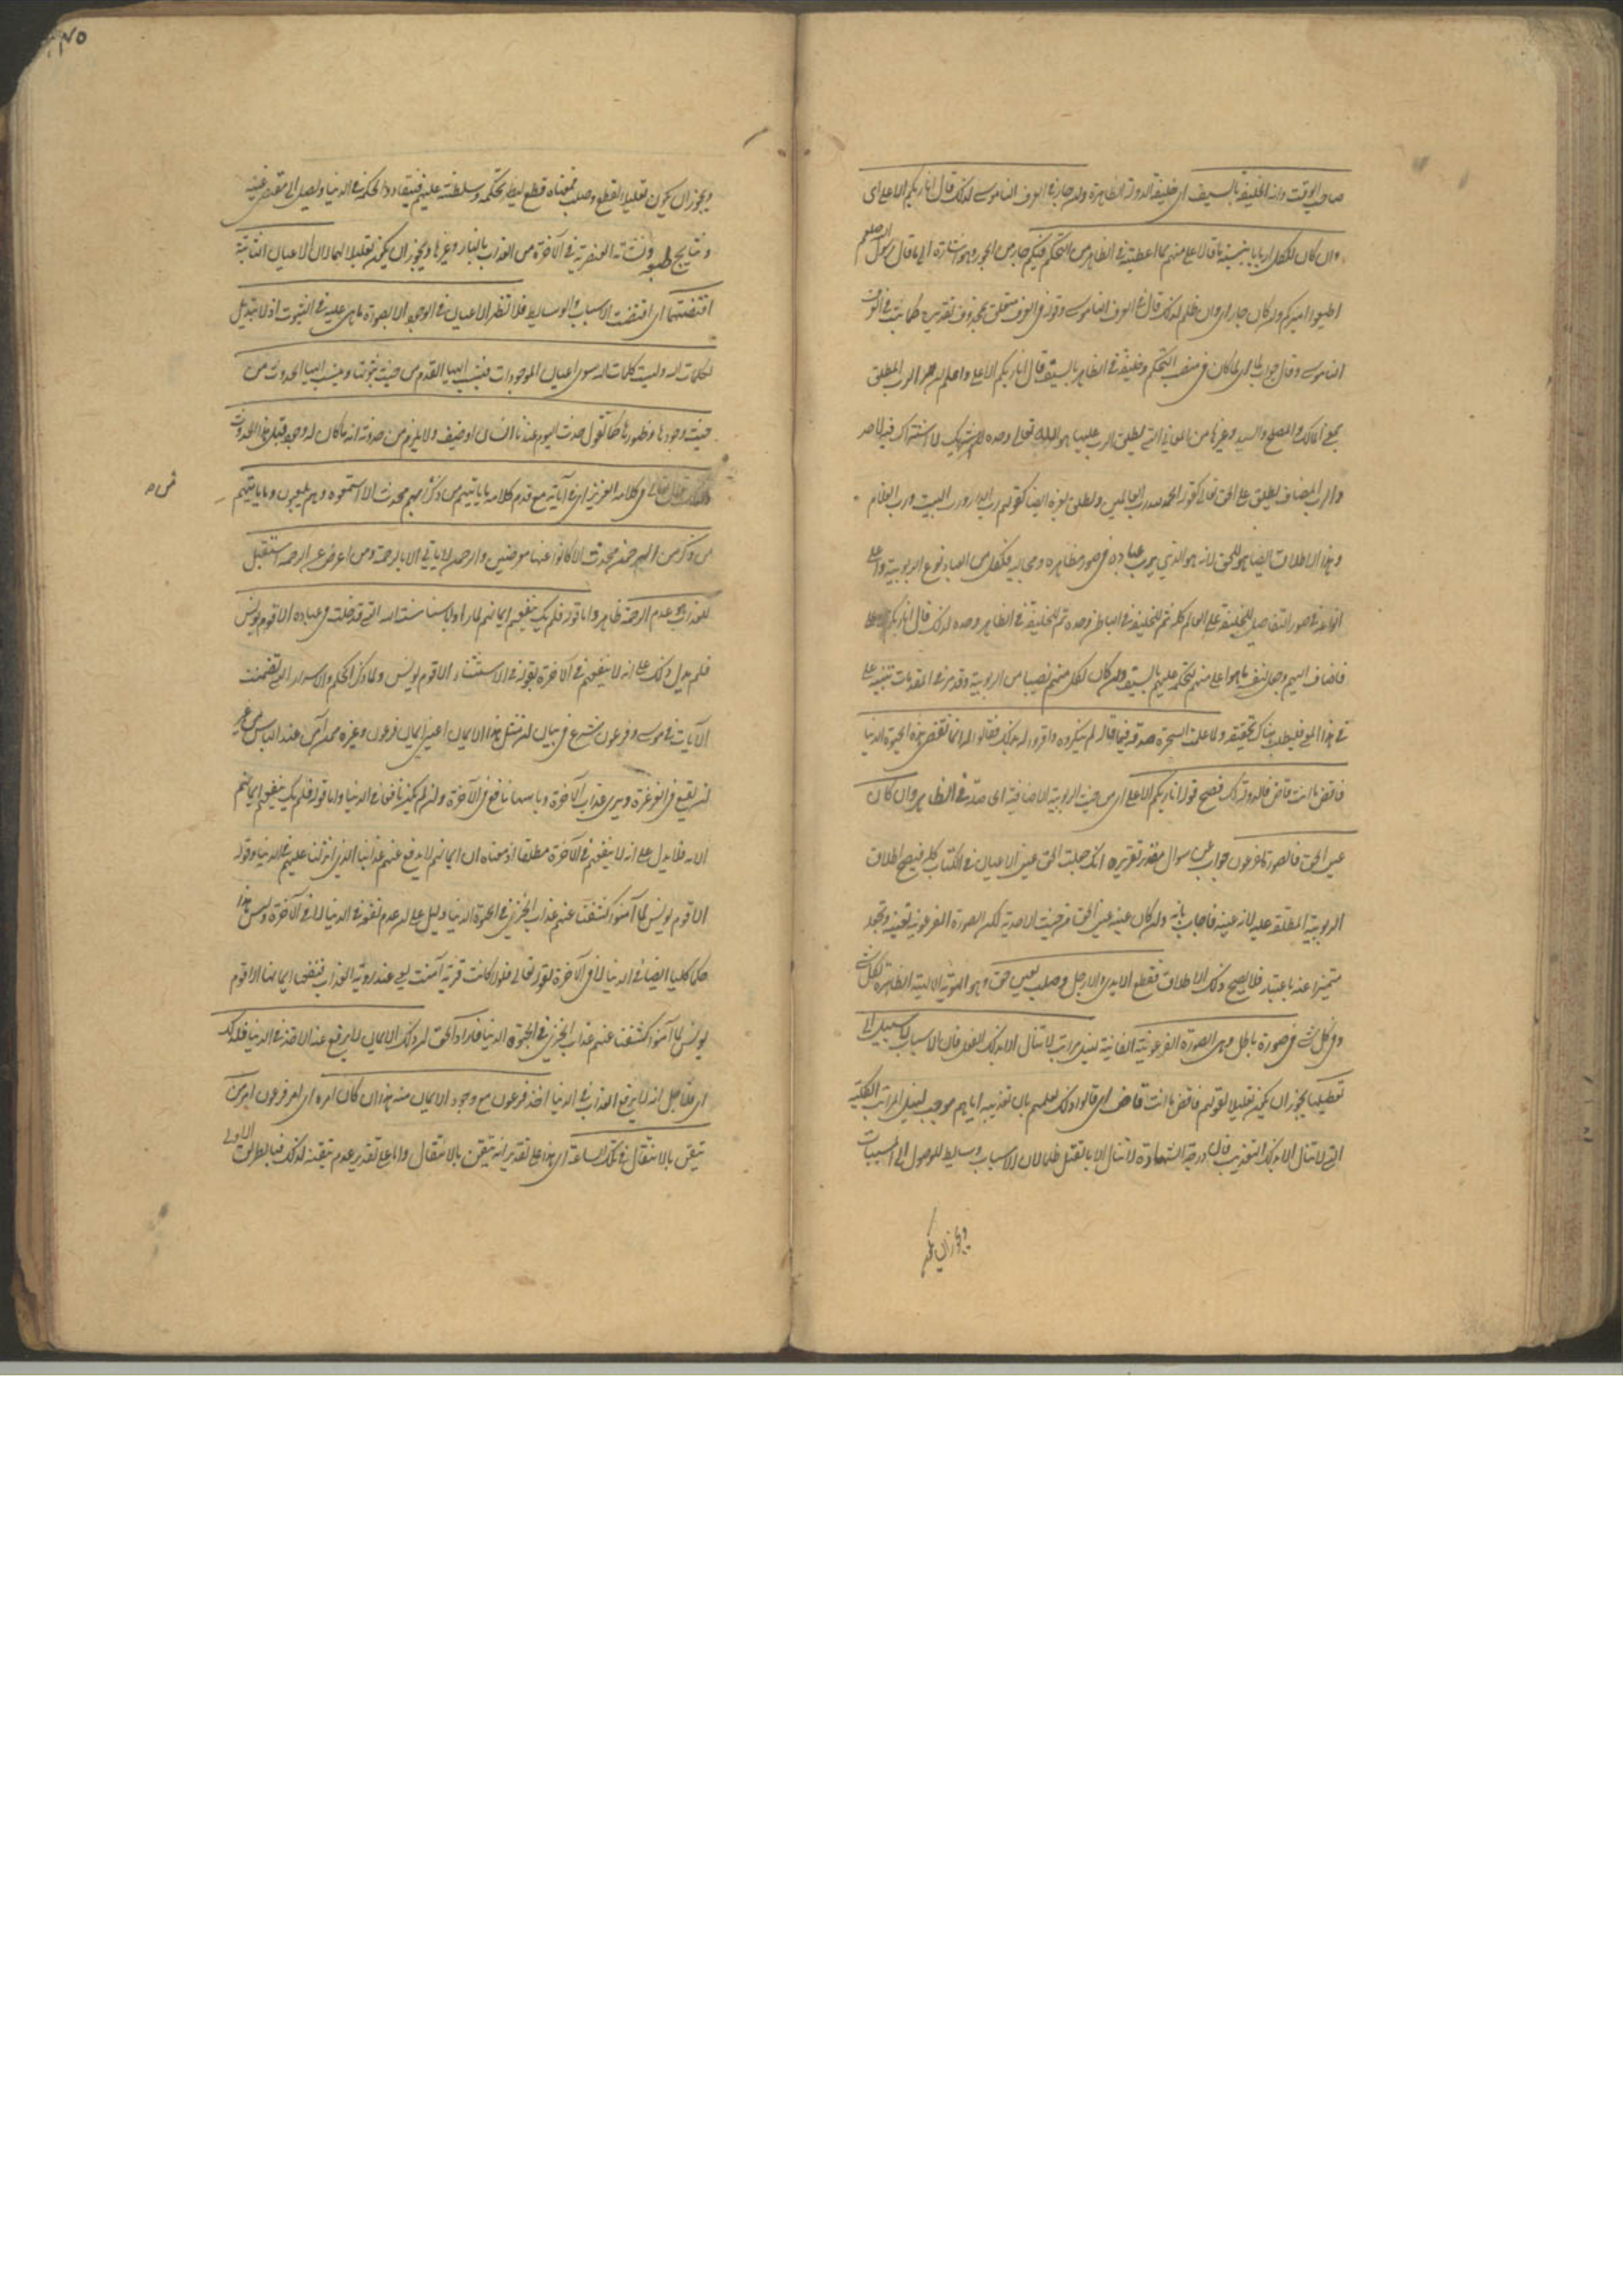 صاحب الوقت وانه الخليفة بالسيف اى خليفة الدولة الظاهرة وان جار فى العرف الناموسى لذلك قال انا ربكم الاعلى اى
وان كان الكل اربابا بنسبة ما فانا الاعلى منهم بما اعطيته فى الظاهر من التحكم فيكم جار من الجور وهو اشارة الى ما قال رسول الله صلعم
اطيعوا اميركم وان كان جار اى وان ظلم لذلك قال فى العرف الناموسى وقوله فى العرف متعلق بمحذوف تقديره كما ثبت فى العرف
الناموسى وقال جواب لما اى لما كان فى منصب التحكم وخليفة فى الظاهر بالسيف قال انا ربكم الاعلى واعلم ان الرب المطلق
بمعنى المالك والمصلح والسيد وغيرها من المعانى التى يطلق الرب عليها هو الله تعالى وحده لا شريك لا اشتراك فيه لاحد
والرب المضاف يطلق على الحق تعالى كقوله الحمد لله رب العالمين ويطلق لغيره ايضا كقولهم رب الدار ورب البيت ورب الغلام
وهذا الاطلاق ايضا هو للحق لانه هو الذى يرب عباده فى صور مظاهره ومجاليه فلكل من العباد نوع الربوبية واعلى
انواعه فى صور التفاصيل للخليفة على العالم كله ثم للخليفة فى الباطن وحده ثم للخليفة فى الظاهر وحده لذلك قال انا ربكم الاعلى
فاضاف اليهم وجعل نفسه ما هو اعلى منهم لتحكمه عليهم بالسيف وان كان لكل منهم نصيبا من الربوبية وقد مر فى المقدمات تنبيه على
فى هذا المعنى فليطلب هناك تحقيقه ولما علمت السحرة صدقه فيما قاله لم ينكروه واقروا له بذلك فقالوا له انما تقضى هذه الحيوة الدنيا
فاقض ما انت قاض فالدولة لك فصح قوله انا ربكم الاعلى اى من حيث الربوبية الاضافية اى صدق فى الظاهر وان كان
عين الحق فالصورة لفرعون جواب عن سوال مقدر تقريره انك جعلت الحق عين الاعيان فى الكتاب كله فيصح اطلاق
الربوبية المطلقة عليه لانه عينه فاجاب بانه وان كان عينه عين الحق من حيث الاحدية لكن الصورة الفرعونية تعينه وتجعله
متميزا عنه باعتبار فلا يصح ذلك الاطلاق فقطع الايدى والارجل وصلب بعين حق وهو الهوية الالهية الظاهرة لكل شئ
وفى كل شئ فى صورة باطل وهى الصورة الفرعونية الفانية لنيل مراتب لا تنال الا بذلك الفعل فان الاسباب لا سبيل الى
تعطيلها يجوز ان يكون تعليلا لقولهم فاقض ما انت قاض اى قالوا ذلك لعلمهم بان تعذيبه اياهم موجب لنيل المراتب الكلية
التى لا تنال الا بذلك التعذيب فان درجة الشهادة لا تنال الا بالقتل ظلما لان الاسباب وسايط للوصول الى المسببات
ويجوز ان يكون
ويجوز ان يكون تعليلا لقطع وصلب فمعناه قطع ليظهر تحكمه وسلطنته عليهم فينقاد ذا الحكم فى الدنيا ويصل الى مقتضى عينه
ونتايج ونشأته العنصرية فى الآخرة من العذاب بالنار وغيرها ويجوز ان يكون تعليلا لهما لان الاعيان الثابتة
اقتضتها اى اقتضت الاسباب والوسايط فلا تظهر الاعيان فى الوجود الا بصورة ما هى عليه فى الثبوت اذ لا تبديل
لكلمات الله وليست كلمات الله سوى اعيان الموجودات فينسب اليها القدم من حيث ثبوتها وينسب اليها الحدوث من
حيث وجودها وظهورها كما تقول حدث اليوم عندنا انسان او ضيف ولا يلزم من حدوثه انه ما كان له وجود قبل هذا الحدوث
لذلك قال تعالى فى كلامه العزيز اى فى آياته مع قدم كلامه ما ياتيهم من ذكر من ربهم محدث الا استمعوه وهم يلعبون وما ياتيهم
من ذكر من الرحمن محدث الا كانوا عنها معرضين والرحمن لا ياتى الا بالرحمة ومن اعرض عن الرحمة استقبل
العذاب هو عدم الرحمة ظاهر واما قوله فلم يك ينفعهم ايمانهم لما راوا باسنا سنت الله التى قد خلت فى عباده الا قوم يونس
فلم يدل ذلك على انه لا ينفعهم فى الآخرة بقوله فى الاستثناء الا قوم يونس ولما ذكر الحكم والاسرار التى تضمنت
الآيات فى موسى وفرعون شرع فى بيان ان مثل هذا الايمان اعنى ايمان فرعون وغيره ممن آمن عند الباس من غير
ان يقع فى الغرغرة ويرى عذاب الآخرة وباسها نافع فى الآخرة وان لم يكن نافعا فى الدنيا واما قوله فلم يك ينفعهم ايمانهم
الآية فلا يدل على انه لا ينفعهم فى الآخرة مطلقا اذ معناه ان ايمانهم لا يدفع عنهم عذابنا الذى انزلنا عليهم فى الدنيا وقوله
الا قوم يونس لما آمنوا كشفنا عنهم عذاب الخزى فى الحيوة الدنيا دليل على ان عدم نفعه فى الدنيا لا فى الآخرة وليس هذا
حكما كليا ايضا فى الدنيا لا فى الآخرة لقوله تعالى فلولا كانت قرية آمنت يعنى عند رؤية العذاب فنفعها ايمانها الا قوم
يونس لما آمنوا كشفنا عنهم عذاب الخزى فى الحيوة الدنيا فاراد الحق ان ذلك الايمان لا يرفع عنه الاخذ فى الدنيا فلذلك
اى فلاجل انه لا يرفع العذاب فى الدنيا اخذ فرعون مع وجود الايمان منه هذا ان كان امره اى امر فرعون امر من
تيقن بالانتقال فى تلك الساعة اى هذا على تقدير انه تيقن بالانتقال واما على تقدير عدم تيقنه لذلك فبالطريق الاولى